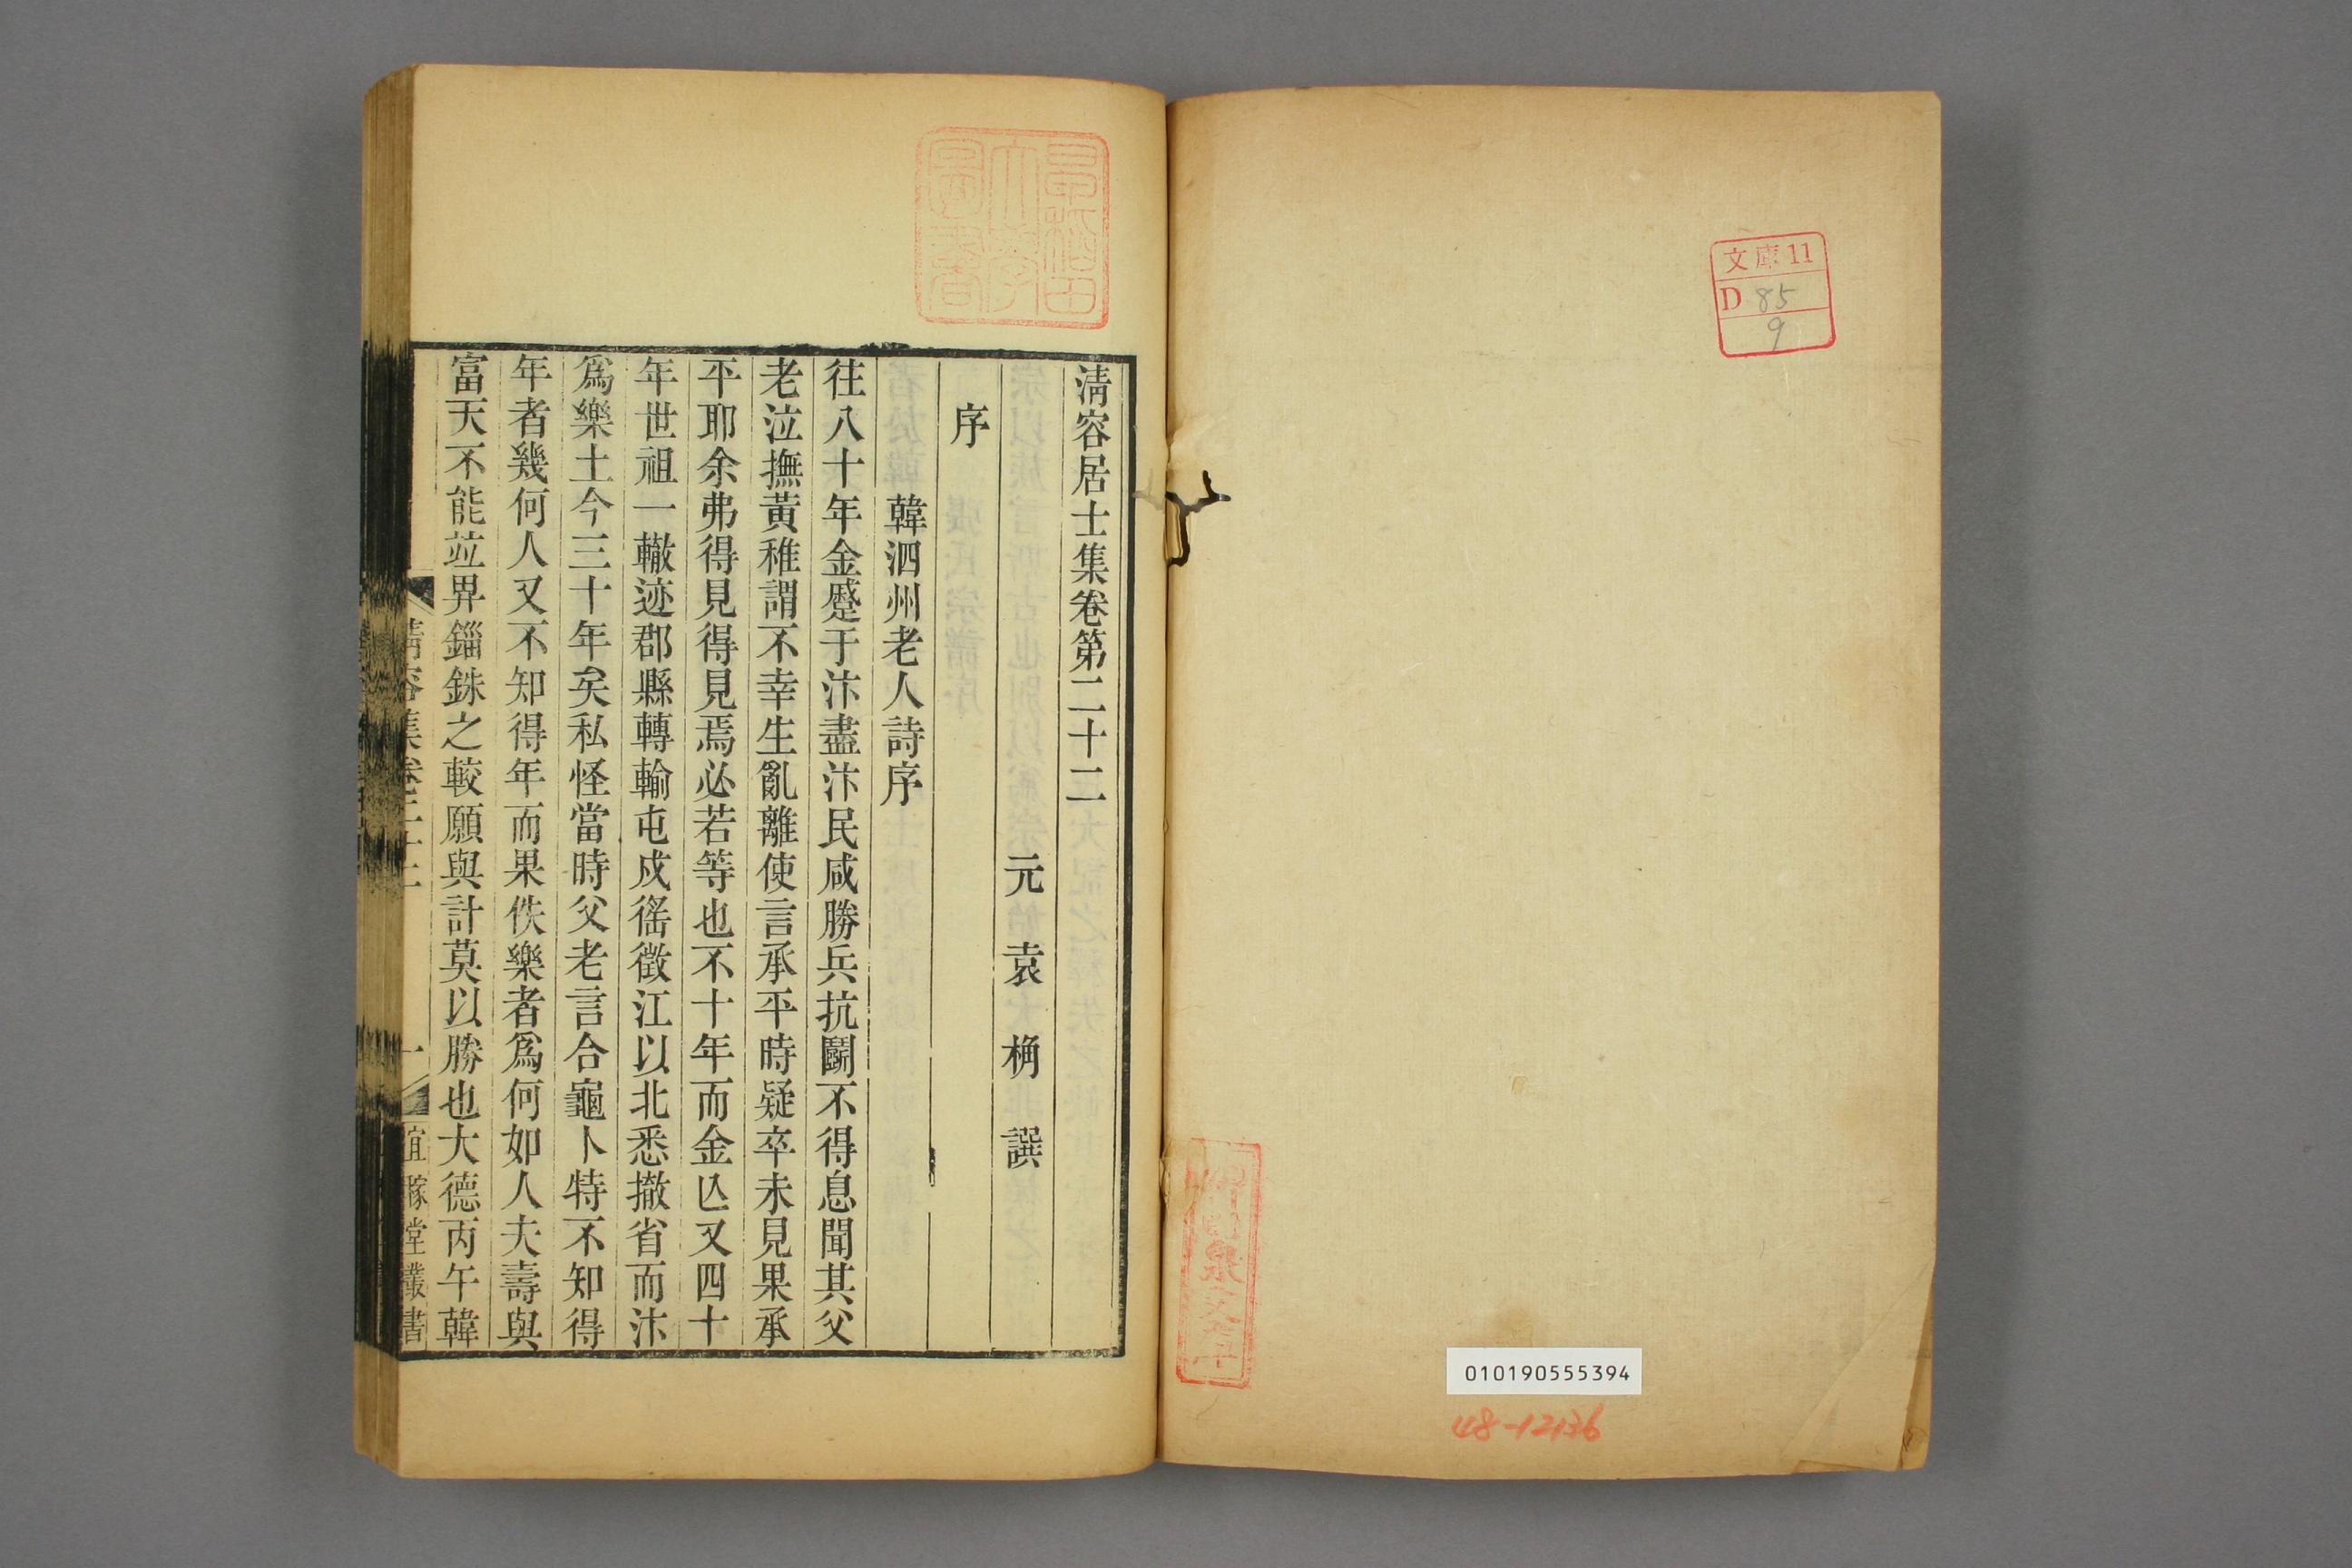 文庫11
D 85
9
010190555394
48-12136
早稲田
大學
圖書
清容居士集卷第二十二
元袁桷譔
序
韓泗州老人詩序
往八十年金蹙于汴盡汴民咸勝兵抗鬭不得息聞其父
老泣撫黃稚謂不幸生亂離使言承平時疑卒未見果承
平耶余弗得見得見焉必若等也不十年而金亾又四十
年世祖一轍迹郡縣轉輸屯戍徭徵江以北悉撤省而汴
爲樂土今三十年矣私怪當時父老言合龜卜特不知得
年者幾何人又不知得年而果佚樂者爲何如人夫壽與
富天不能竝畀錙銖之較願與計莫以勝也大德丙午韓
清容集卷二十二
一
宜稼堂叢書